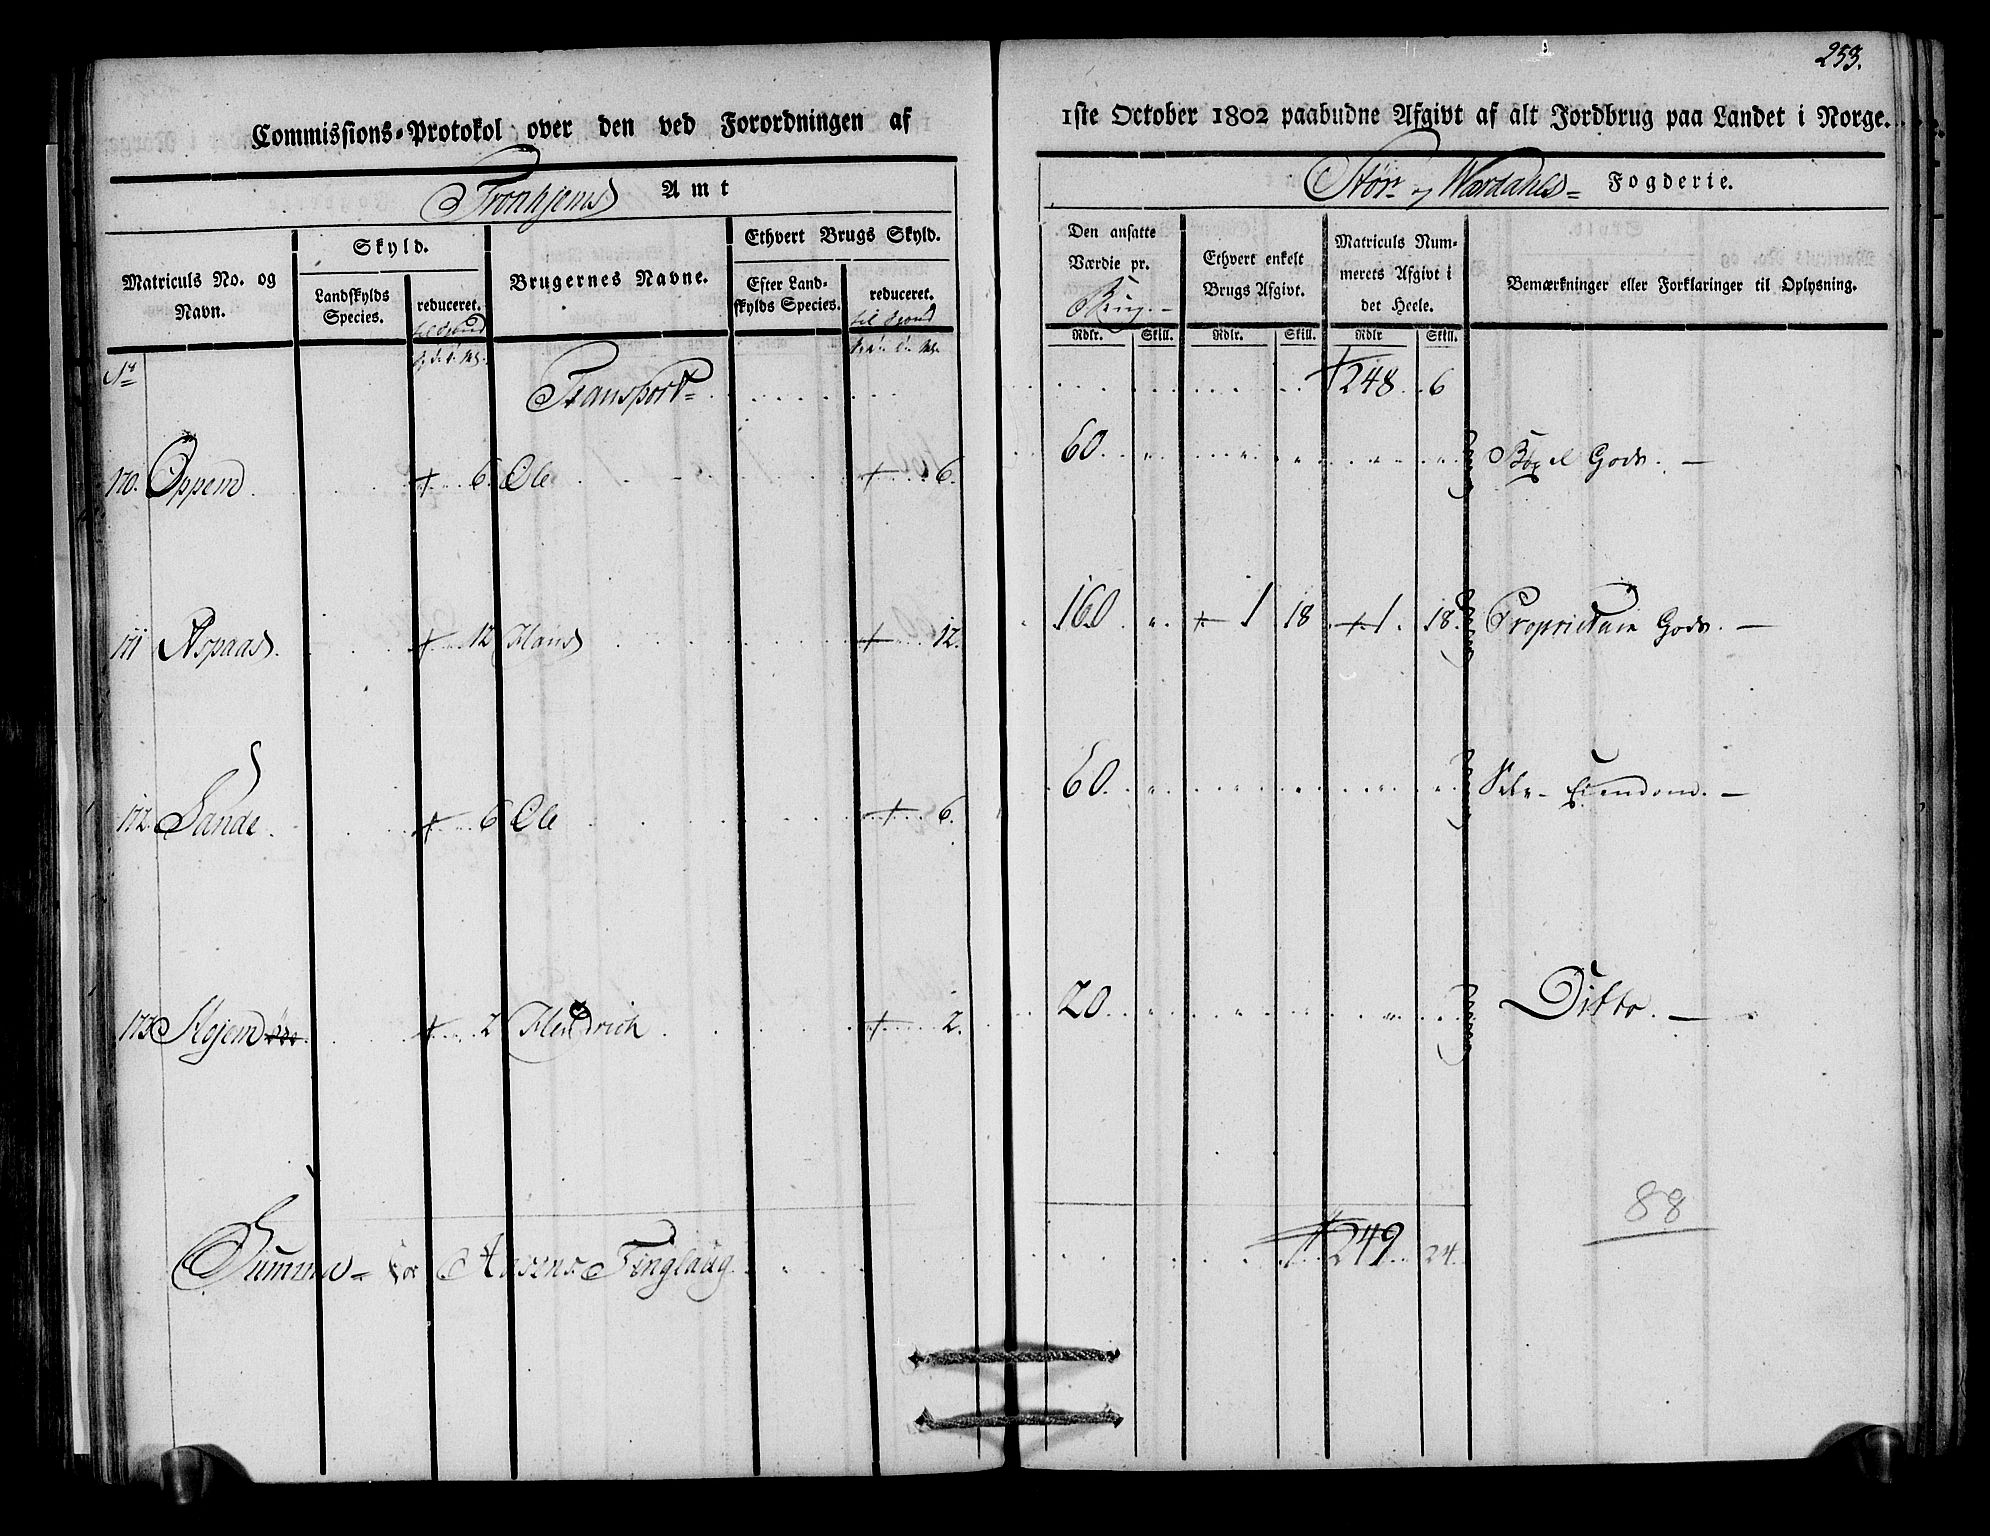 253.
Commissions-Protokol over den ved Forordningen af 1ste October 1802 paabudne Afgivt af alt Jordbrug paa Landet i Norge.
Tronhjems Amt
Stör og Værdahls Fogderie.
Matriculs No. og Navn.
Skyld.
Landskylds Species.
reduceret.
Brugernes Navne.
Ethvert Brugs Skyld.
Efter Landskylds Species.
reduceret.
Den ansatte Værdie pr. Brug.
Ethvert enkelt Brugs Afgivt.
Matriculs Nummerets Afgivt i det Heele.
Bemærkninger eller Forklaringer til Oplysning.
Rdlr. Skill. Rdlr. Skill. Rdlr Skill.
No
Transport 248 6
170. Oppem 6. Ole 6. 60.
171 Aspaas. 12 Hans 12. 160. 1 18 1. 18. Proprietair Gods.
172. Sande. 6 Ole 6. 60. Selv-Eiendom.
173 2 Hendrich 2. 20. Ditto.
Summa for Aasens Tinglaug 249 24.
88